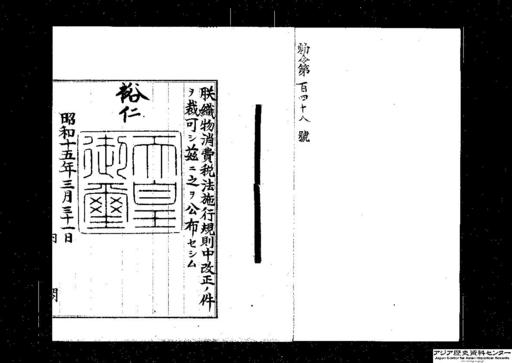 勅令第百四十八號
朕織物消費税法施行規則中改正ノ件
ヲ裁可シ茲ニ之ヲ公布セシム
裕仁
天皇
御璽
昭和十五年三月三十一日
アジア歴史資料センター
Japan Center for Asian Historical Records